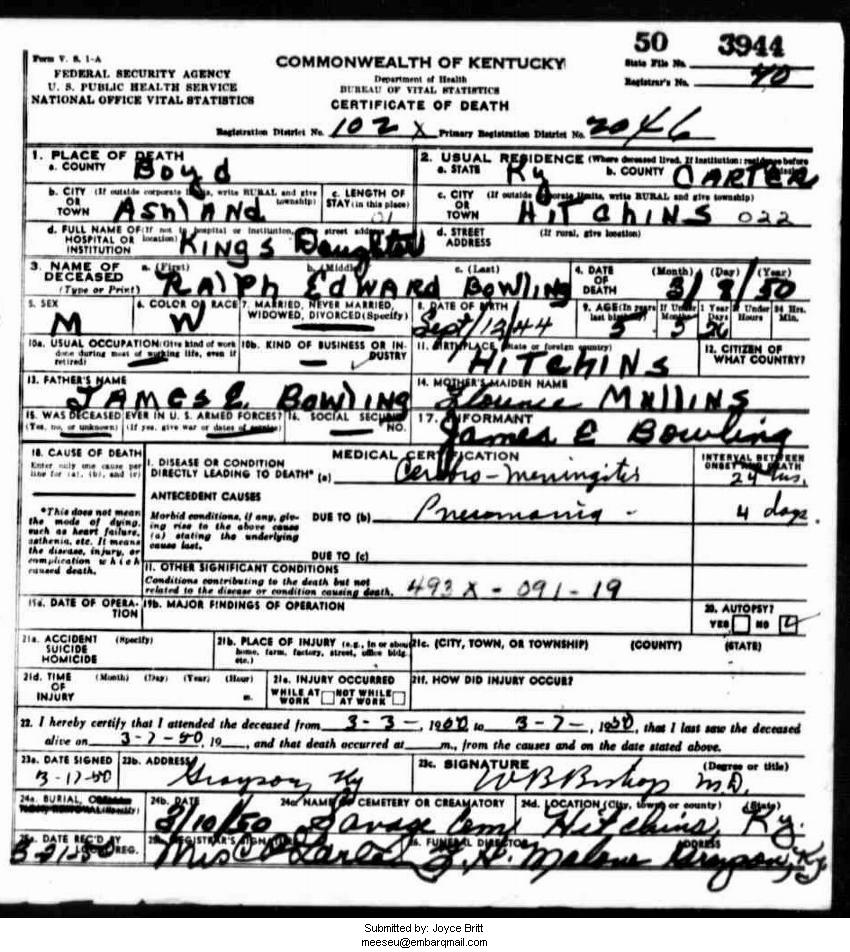 50 3944
Form V. S. 1-A
COMMONWEALTH OF KENTUCKY
State File No.
FEDERAL SECURITY AGENCY
Department of Health
Registrar's No. 40
U. S. PUBLIC HEALTH SERVICE
BUREAU OF VITAL STATISTICS
NATIONAL OFFICE VITAL STATISTICS
CERTIFICATE OF DEATH
Registration District No. 102 X Primary Registration District No. 2046
1. PLACE OF DEATH
a. COUNTY Boyd
2. USUAL RESIDENCE (Where deceased lived. If institution: residence before
a. STATE Ky b. COUNTY CARTER
b. CITY (If outside corporate limits, write RURAL and give township)
OR TOWN Ashland
c. LENGTH OF STAY (in this place) 01
c. CITY (If outside corporate limits, write RURAL and give township)
OR TOWN HITCHINS 022
d. FULL NAME OF (If not in hospital or institution, street address or location)
HOSPITAL OR INSTITUTION Kings Daughter
d. STREET ADDRESS (If rural, give location)
3. NAME OF DECEASED (Type or Print)
a. (First) b. (Middle) c. (Last)
RALPH EDWARD BOWLING
4. DATE OF DEATH (Month) (Day) (Year)
3/8/50
5. SEX M
6. COLOR OR RACE W
7. MARRIED, NEVER MARRIED, WIDOWED, DIVORCED (Specify)
8. DATE OF BIRTH Sept/12/44
9. AGE (In years last birthday) 5
If Under 1 Year Months 5 Days 26
If Under 24 Hrs. Hours Min.
10a. USUAL OCCUPATION (Give kind of work done during most of working life, even if retired)
10b. KIND OF BUSINESS OR INDUSTRY
11. BIRTHPLACE (State or foreign country) HITCHINS
12. CITIZEN OF WHAT COUNTRY?
13. FATHER'S NAME
JAMES E. BOWLING
14. MOTHER'S MAIDEN NAME
Florence Mullins
15. WAS DECEASED EVER IN U. S. ARMED FORCES?
(Yes, no, or unknown) (If yes, give war or dates of service)
16. SOCIAL SECURITY NO.
17. INFORMANT
James E Bowling
18. CAUSE OF DEATH
Enter only one cause per line for (a), (b), and (c)
MEDICAL CERTIFICATION
INTERVAL BETWEEN ONSET AND DEATH
I. DISEASE OR CONDITION
DIRECTLY LEADING TO DEATH* (a) Cerebro-meningitis 24 hrs.
*This does not mean the mode of dying, such as heart failure, asthenia, etc. It means the disease, injury, or complication which caused death.
ANTECEDENT CAUSES
Morbid conditions, if any, giving rise to the above cause (a) stating the underlying cause last.
DUE TO (b) Pneumonia - 4 days.
DUE TO (c)
II. OTHER SIGNIFICANT CONDITIONS
Conditions contributing to the death but not related to the disease or condition causing death. 493X - 091-19
19a. DATE OF OPERATION
19b. MAJOR FINDINGS OF OPERATION
20. AUTOPSY?
YES NO
21a. ACCIDENT SUICIDE HOMICIDE (Specify)
21b. PLACE OF INJURY (e.g., in or about home, farm, factory, street, office bldg. etc.)
21c. (CITY, TOWN, OR TOWNSHIP) (COUNTY) (STATE)
21d. TIME OF INJURY (Month) (Day) (Year) (Hour) m.
21e. INJURY OCCURRED
WHILE AT WORK NOT WHILE AT WORK
21f. HOW DID INJURY OCCUR?
22. I hereby certify that I attended the deceased from 3-3-, 1950 to 3-7-, 1950, that I last saw the deceased
alive on 3-7-50, 19 , and that death occurred at m., from the causes and on the date stated above.
23a. DATE SIGNED
3-17-50
23b. ADDRESS
Grayson, Ky
23c. SIGNATURE (Degree or title)
W B Bishop M.D.
24a. BURIAL,
24b. DATE
3/10/50
24c. NAME OF CEMETERY OR CREAMATORY
Savage Cem
24d. LOCATION (City, town or county) (State)
Hitchins, Ky.
25a. DATE REC'D BY LOCAL REG.
3-21-50
25b. REGISTRAR'S SIGNATURE
26. FUNERAL DIRECTOR ADDRESS
Malone Grayson, Ky
Submitted by: Joyce Britt
meeseu@embarqmail.com